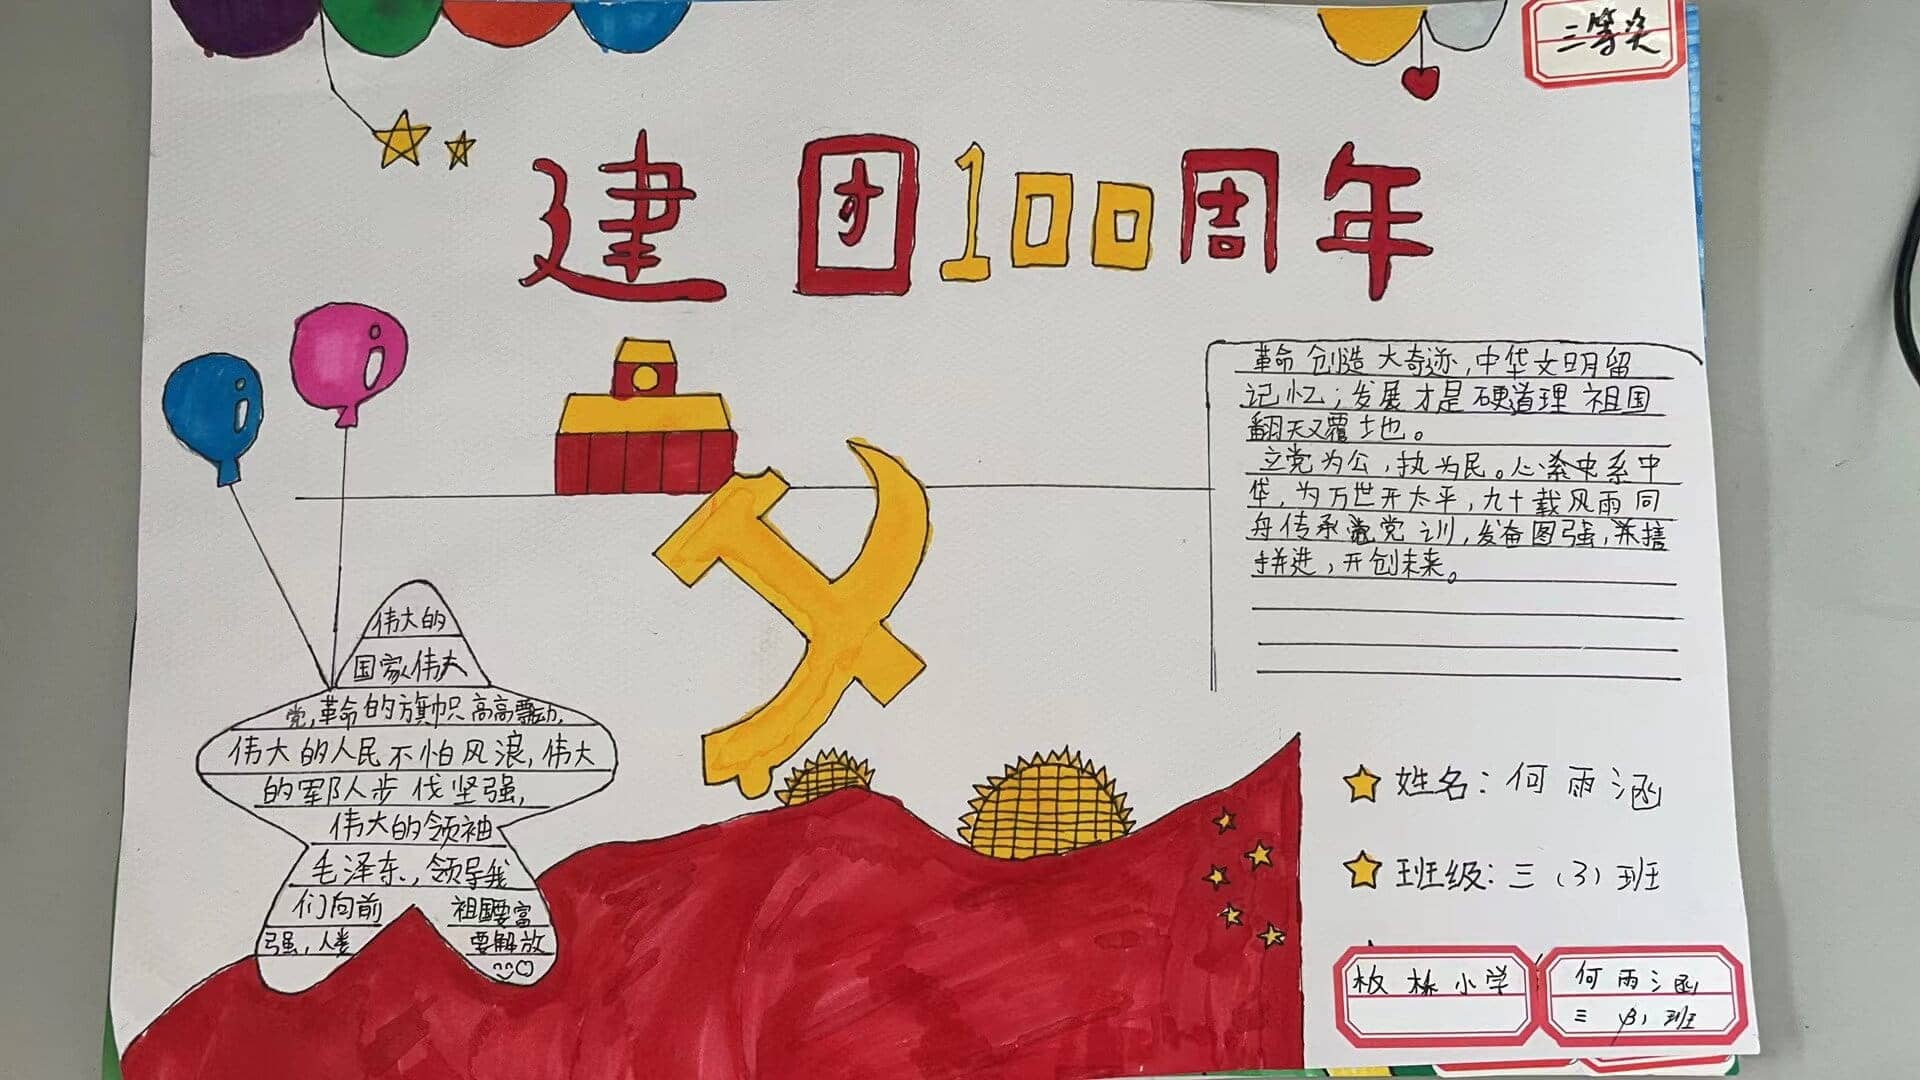 三等奖
建团100周年
革命创造大奇迹,中华文明留
记忆;发展才是硬道理 祖国
翻天又覆土地。
立党为公,执为民。心系中
华,为万世开太平,九十载风雨同
舟传承党训,发奋图强,
拼进,开创未来。
伟大的
国家伟大
党,革命的旗帜高高飘动,
伟大的人民不怕风浪,伟大
的军队人步伐坚强,
伟大的领袖
毛泽东,领导我
们向前 祖国要富
强,人类 要解放
姓名:何雨涵
班级:三(3)班
板林小学
何雨涵
三(3)班